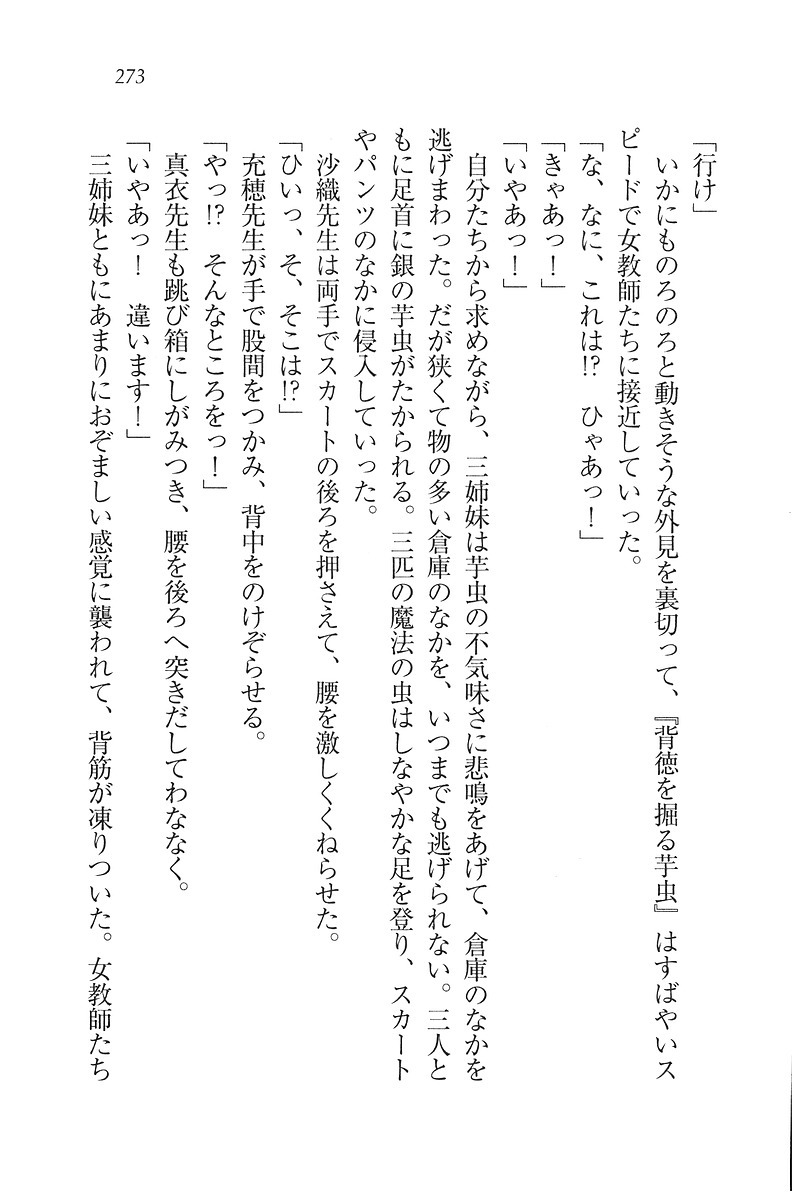 273
「行け」
　いかにものろのろと動きそうな外見を裏切って、『背徳を掘る芋虫』はすばやいス
ピードで女教師たちに接近していった。
「な、なに、これは!?　ひゃあっ！」
「きゃあっ！」
「いやあっ！」
　自分たちから求めながら、三姉妹は芋虫の不気味さに悲鳴をあげて、倉庫のなかを
逃げまわった。だが狭くて物の多い倉庫のなかを、いつまでも逃げられない。三人と
もに足首に銀の芋虫がたかられる。三匹の魔法の虫はしなやかな足を登り、スカート
やパンツのなかに侵入していった。
　沙織先生は両手でスカートの後ろを押さえて、腰を激しくくねらせた。
「ひいっ、そ、そこは!?」
　充穂先生が手で股間をつかみ、背中をのけぞらせる。
「やっ!?　そんなところをっ！」
　真衣先生も跳び箱にしがみつき、腰を後ろへ突きだしてわななく。
「いやあっ！　違います！」
　三姉妹ともにあまりにおぞましい感覚に襲われて、背筋が凍りついた。女教師たち